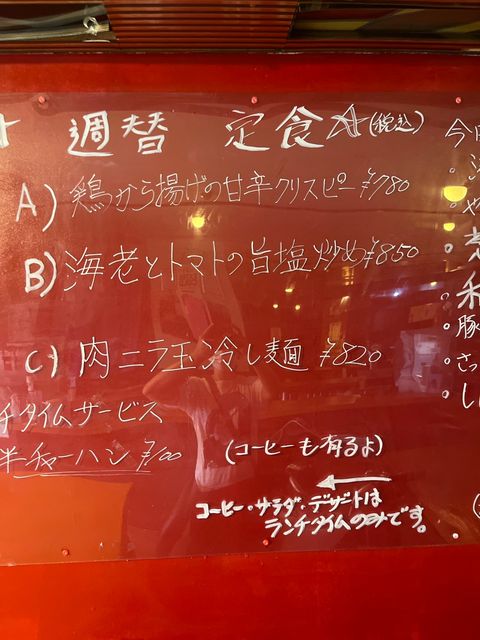 ☆ 週替 定食☆(税込)
A) 鶏から揚げの甘辛クリスピー ¥780
B) 海老とトマトの旨塩炒め ¥850
C) 肉ニラ玉冷し麺 ¥820
チタイムサービス
半チャーハン ¥100
(コーヒーも有るよ)
←
コーヒー・サラダ・デザートは
ランチタイムのみです。
今
・
・や
・
・
・豚
・さっ
・し